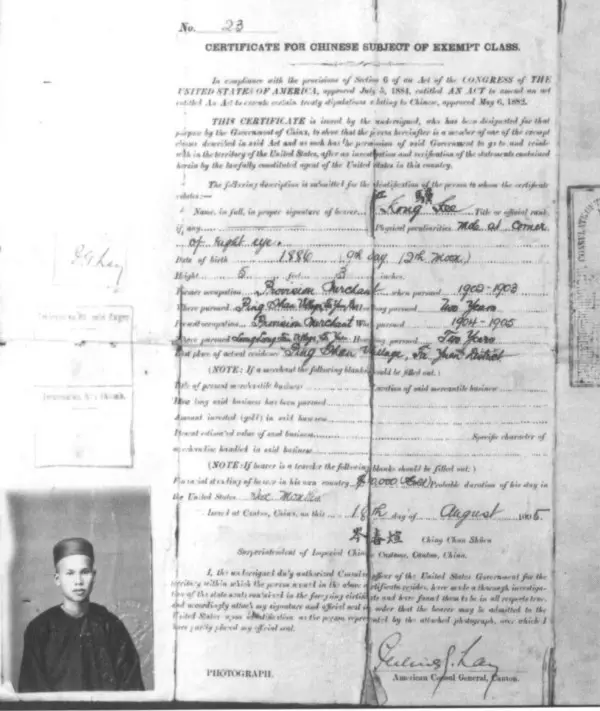 No. 23
CERTIFICATE FOR CHINESE SUBJECT OF EXEMPT CLASS.
In compliance with the provisions of Section 6 of an Act of the CONGRESS of THE
UNITED STATES OF AMERICA, approved July 5, 1884, entitled AN ACT to amend an act
entitled An Act to execute certain treaty stipulations relating to Chinese, approved May 6, 1882.
THIS CERTIFICATE is issued by the undersigned, who has been designated for that
purpose by the Government of China, to show that the person hereinafter is a member of one of the exempt
classes described in said Act and as such has the permission of said Government to go to and reside
within the territory of the United States, after an investigation and verification of the statements contained
herein by the lawfully constituted agent of the United States in this country.
The following description is submitted for the identification of the person to whom the certificate
relates:—
Name, in full, in proper signature of bearer Kong Title or official rank
if any Physical peculiarities Mole at Corner
of Right eye.
Date of birth 1886 9th day 12th Moon
Height 5 feet 3 inches.
Former occupation Provision Merchant when pursued 1902-1903
Where pursued Ping Shan Village, long pursued Two Years
Present occupation Provision Merchant When pursued 1904-1905
Where pursued Village, How long pursued Two Years
Last place of actual residence Ping Shan Village, District
(NOTE: If a merchant the following blanks should be filled out.)
Title of present mercantile business Location of said mercantile business
How long said business has been pursued
Amount invested (gold) in said business
Present estimated value of said business Specific character of
merchandise handled in said business
(NOTE: If bearer is a traveler the following blanks should be filled out.)
Financial standing of bearer in his own country (Gold) Probable duration of his stay in
the United States
Issued at Canton, China, on this 18th day of August 1905
岑春煊 Ching Chun Shuen
Superintendent of Imperial Chinese Customs, Canton, China.
I, the undersigned duly authorized Consular officer of the United States Government for the
territory within which the person named in the above certificate resides, have made a thorough investiga-
tion of the statements contained in the foregoing certificate and have found them to be in all respects true,
and accordingly attach my signature and official seal in order that the bearer may be admitted to the
United States upon identification as the person represented by the attached photograph, over which I
have partly placed my official seal.
American Consul General, Canton.
PHOTOGRAPH.